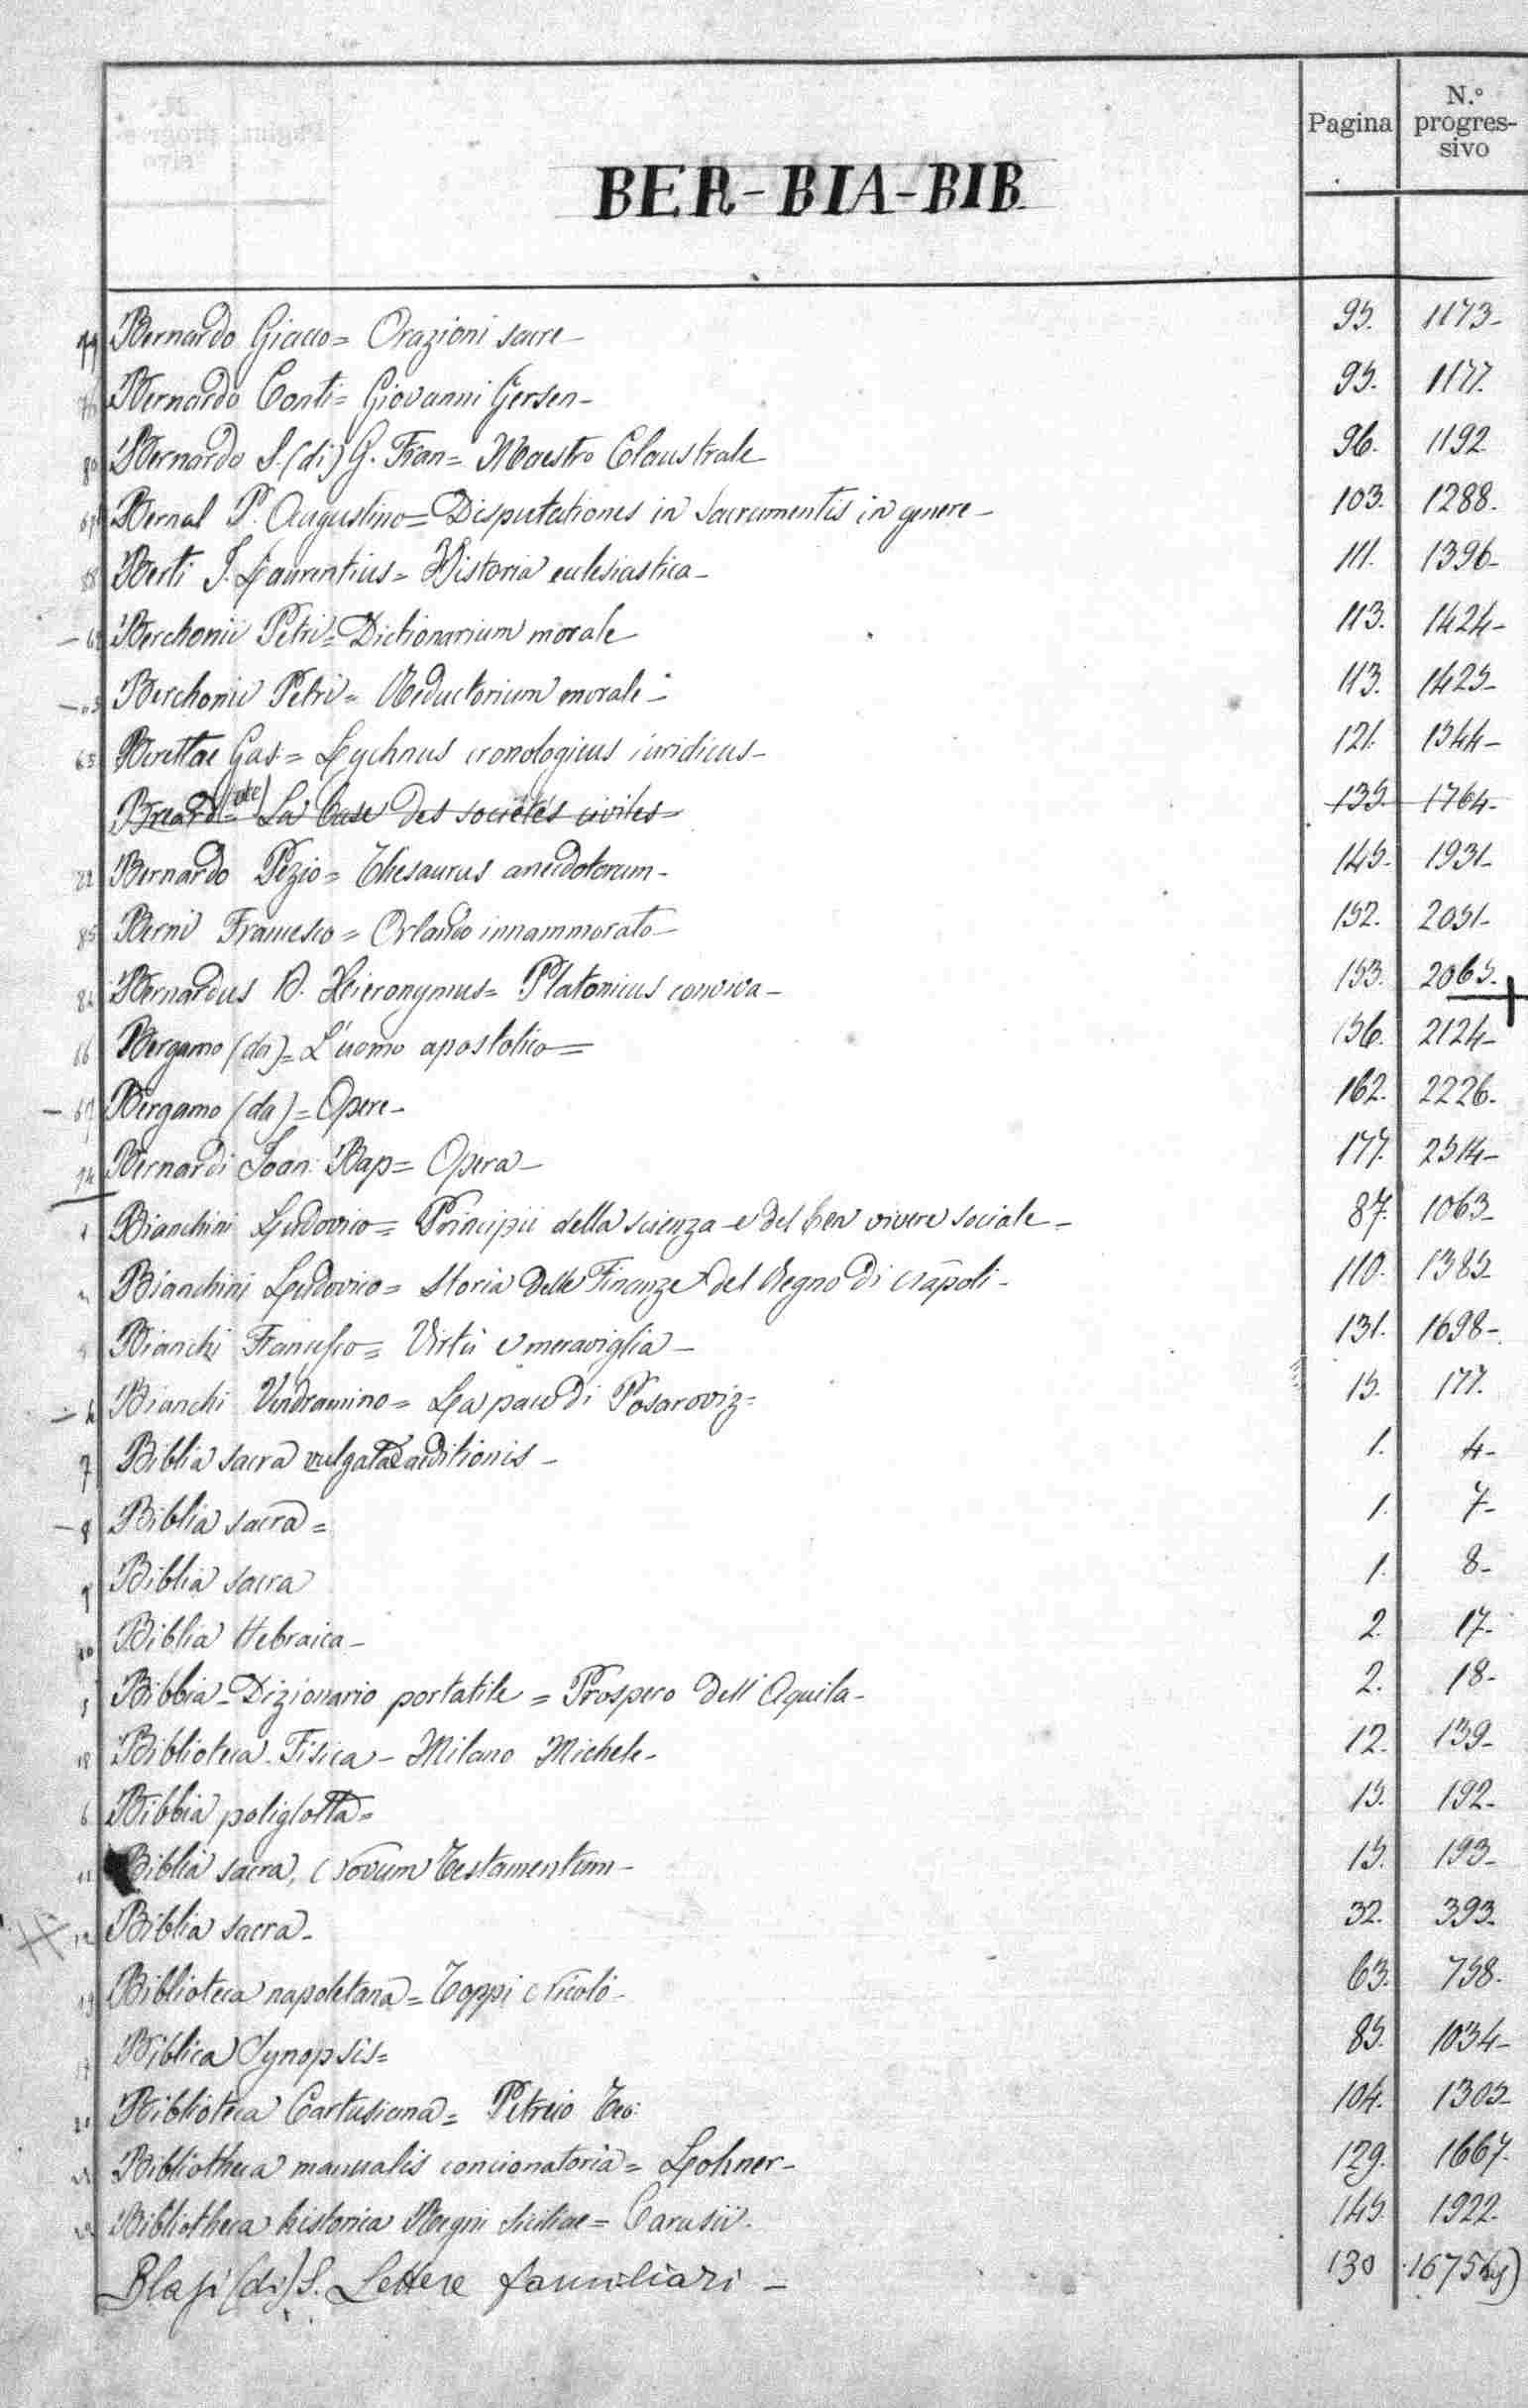 Pagina N.º progres-sivo
BER-BIA-BIB.
79 Bernardo Giacco= Orazioni sacre- 95. 1173-
Bernardo Conti= Giovanni Gersen- 95. 1177.
80 Bernardo S. (di) G. Fran= Maestro Claustrale 96. 1192
Bernal P. Augustino= Disputationes in Sacramentis in genere- 103. 1288.
88 Berti J. Laurentius= Historia eclesiastica- 111. 1396-
Berchonii Petri= Dictionarium morale 113. 1424-
Berchonii Petri= Reductorium morale- 113. 1425-
65 Berettae Gas:= Lychnus cronologicus iuridicus- 121. 1544-
Breard= (de) La Case des societés civiles= 135. 1764-
Bernardo Pezio= Thesaurus anecdotorum- 145. 1931-
85 Berni Francesco= Orlando innammorato- 152. 2051-
Bernardus D. Hieronymus= Platonicus conviva- 153. 2065.
66 Bergamo (da)= L'uomo apostolico= 156. 2124-
- 67 Bergamo (da)= Opere- 162. 2226.
Bernardi Joan: Bap= Opera- 177. 2514-
1 Bianchini Ludovico= Principii della scienza e del ben vivere sociale- 87. 1063-
Bianchini Ludovico= Storia delle Finanze del Regno di Napoli- 110. 1385-
Bianchi Francesco= Virtù e meraviglia- 131. 1698-
Bianchi Vendramino= La pace di Posaroviz= 15. 177.
7 Biblia sacra vulgatae aeditionis- 1. 4-
- 8 Biblia sacra= 1. 7-
9 Biblia sacra 1. 8-
10 Biblia Hebraica- 2. 17-
5 Bibbia-Dizionario portatile= Prospero dell'Aquila- 2. 18-
18 Biblioteca-Fisica- Milano Michele- 12. 139-
6 Bibbia poliglotta= 15. 192-
11 Biblia sacra, Novum Testamentum- 15. 193-
12 Biblia sacra- 32. 393-
19 Biblioteca napoletana= Toppi Nicolò- 63. 758-
17 Biblica Synopsis= 85. 1034-
Biblioteca Cartusiana= Petreio Teo: 104. 1305-
Bibliotheca manualis concionatoria= Lohner- 129. 1667.
Bibliotheca historica Regni Siciliae= Carusii. 145. 1922.
Blasi (di) S. Lettere familiari- 130 1675 bis)